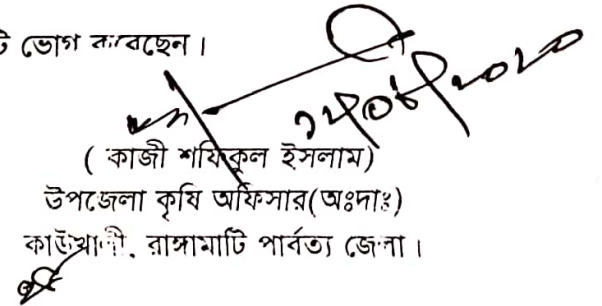 ভোগ করেছেন।
( কাজী শফিকুল ইসলাম)
উপজেলা কৃষি অফিসার(অঃদাঃ)
কাউখালী, রাঙ্গামাটি পার্বত্য জেলা।